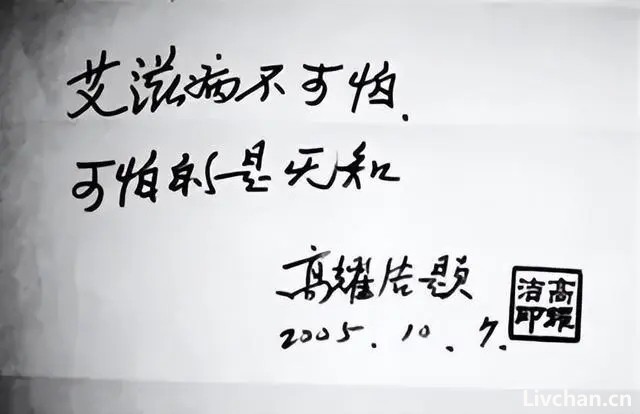 艾滋病不可怕.
可怕的是无知
高耀洁题
2005.10.7.
高耀
洁印
Livchan.cn